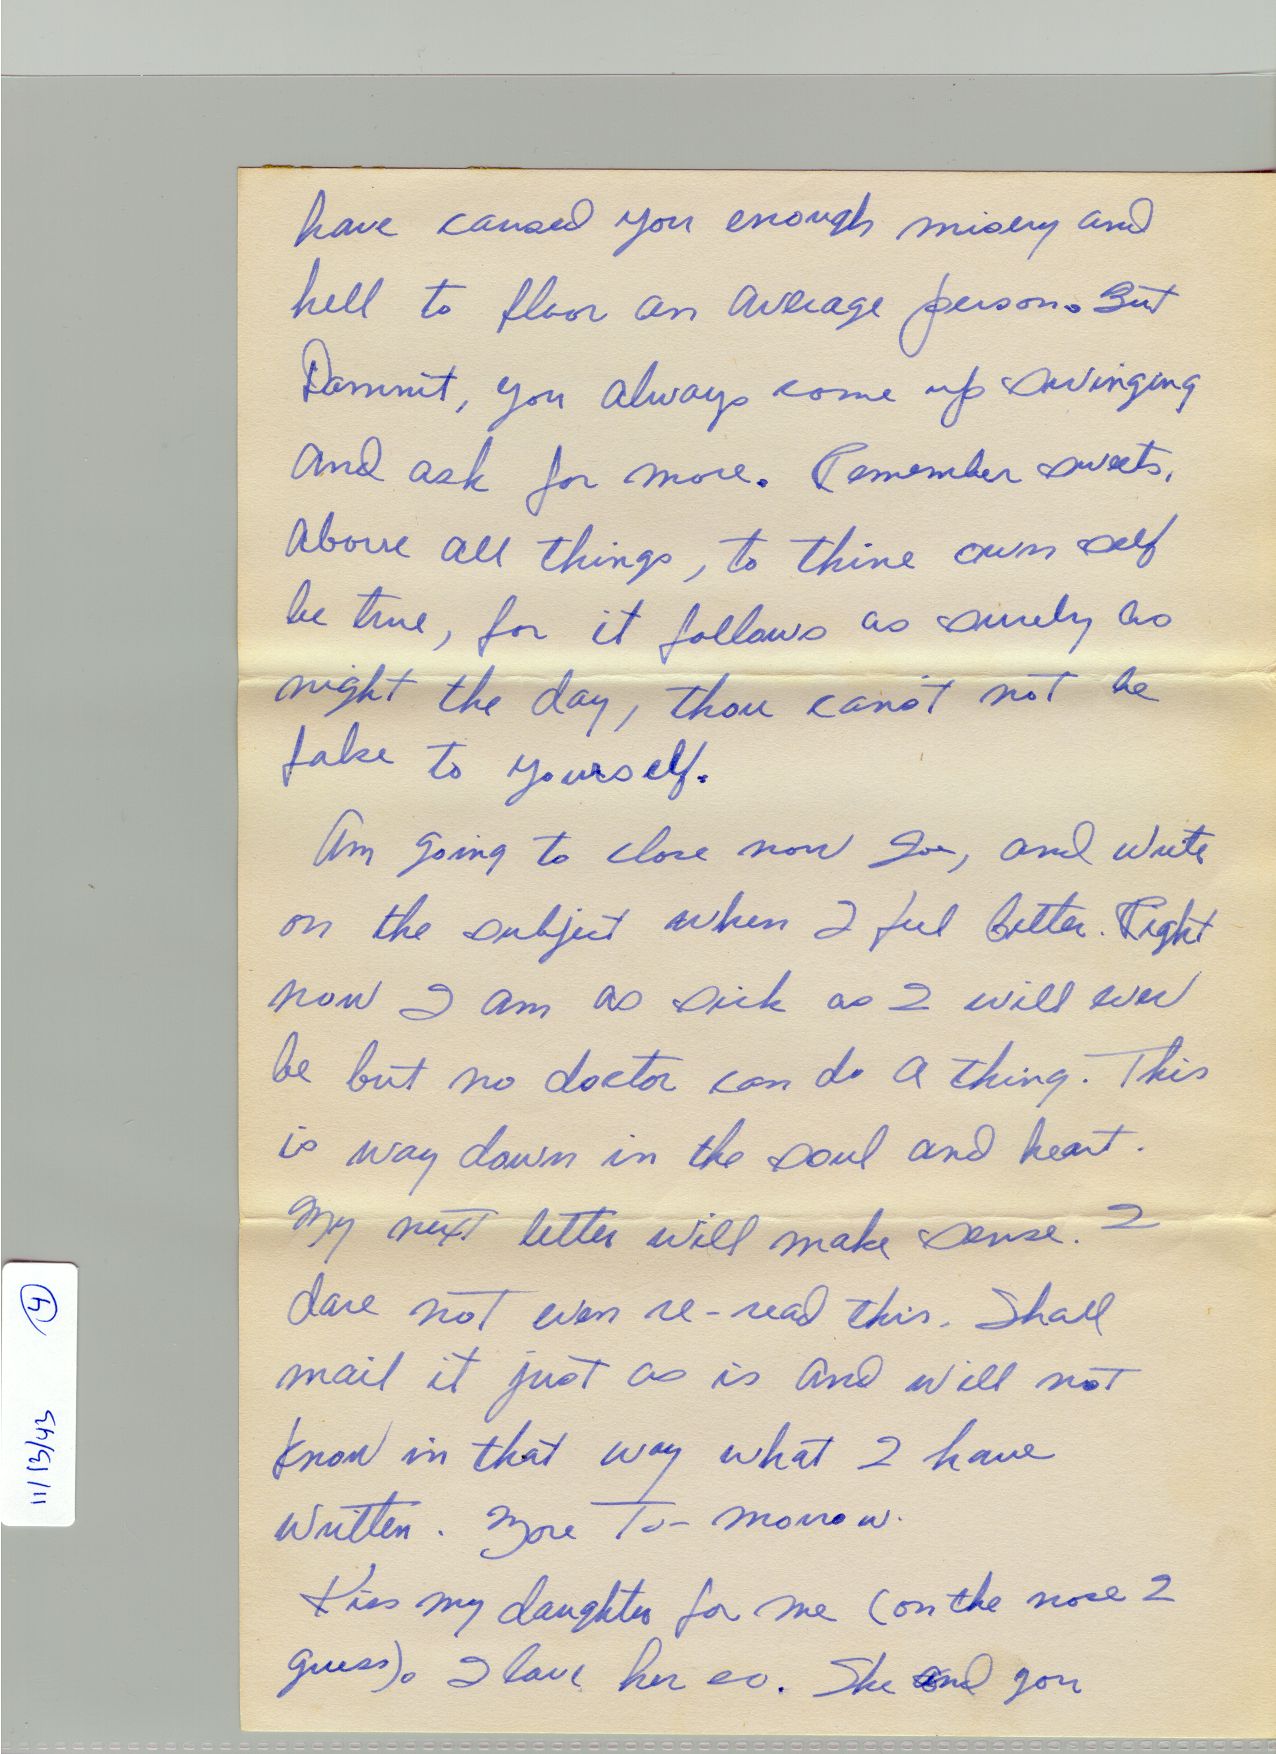 have caused you enough misery and
hell to floor an average person. But
Dammit, you always come up swinging
and ask for more. Remember sweets,
above all things, to thine own self
be true, for it follows as surely as
night the day, thou cans't not be
false to yourself.
Am going to close now and write
on the subject when I feel better. Right
now I am as sick as I will ever
be but no doctor can do a thing. This
is way down in the soul and heart.
My next letter will make sense. I
dare not even re-read this. Shall
mail it just as is and will not
know in that way what I have
written. More To-morrow.
Kiss my daughter for me (on the nose I
guess). I love her so. She and you
4
11/13/43